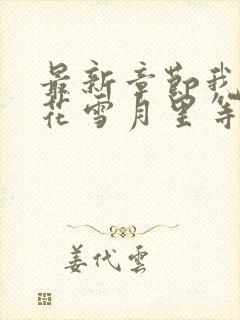 最新章節我
花雪月里等
姜代雲